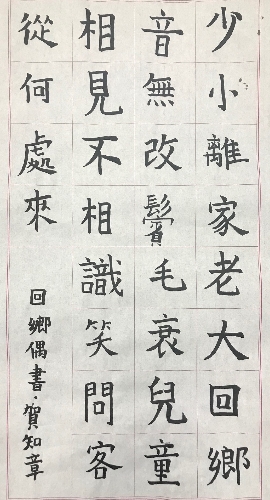 少小離家老大回鄉
音無改鬢毛衰兒童
相見不相識笑問客
從何處來
回鄉偶書·賀知章